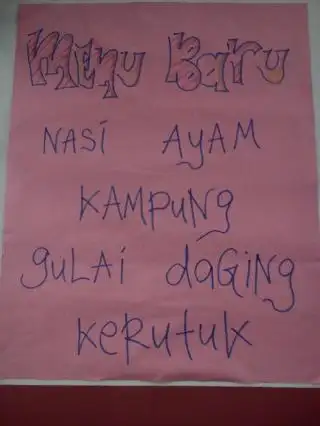 Menu Baru
NASi AyAM
KAMpuNg
guLAi daGiNg
KeRutuK